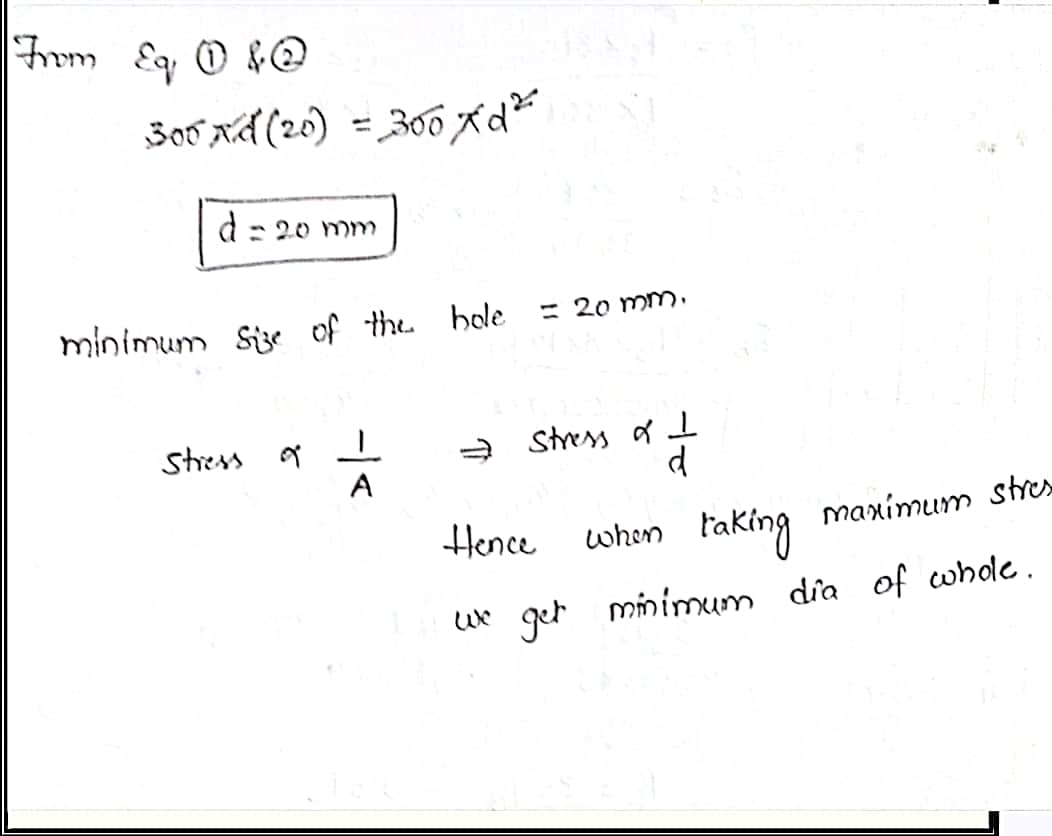 From Eq ① & ②
300 πd (20) = 300 πd²
d = 20 mm
minimum size of the hole = 20 mm.
Stress ∝ 1/A ⇒ Stress ∝ 1/d
Hence when taking maximum stres
we get minimum dia of whole.